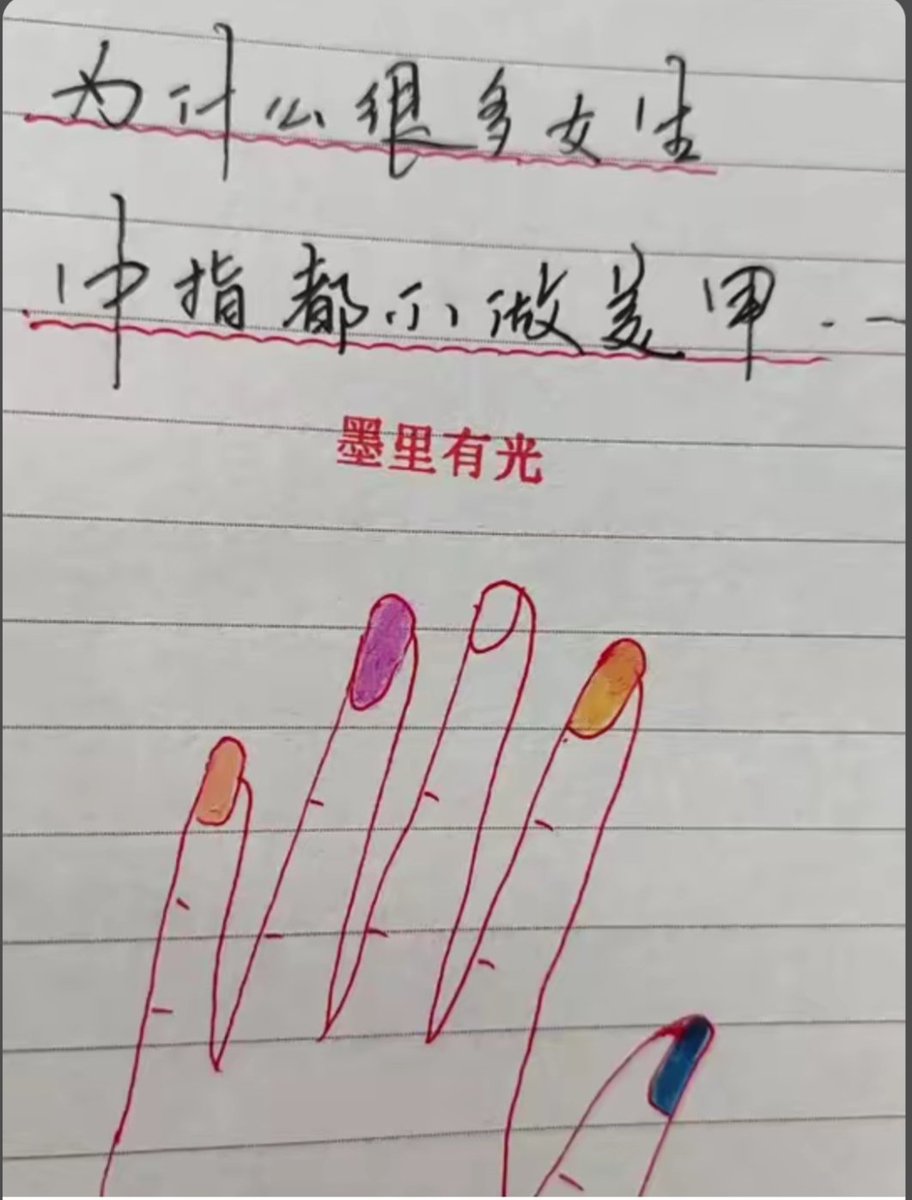 为什么很多女生
中指都不做美甲..一
墨里有光